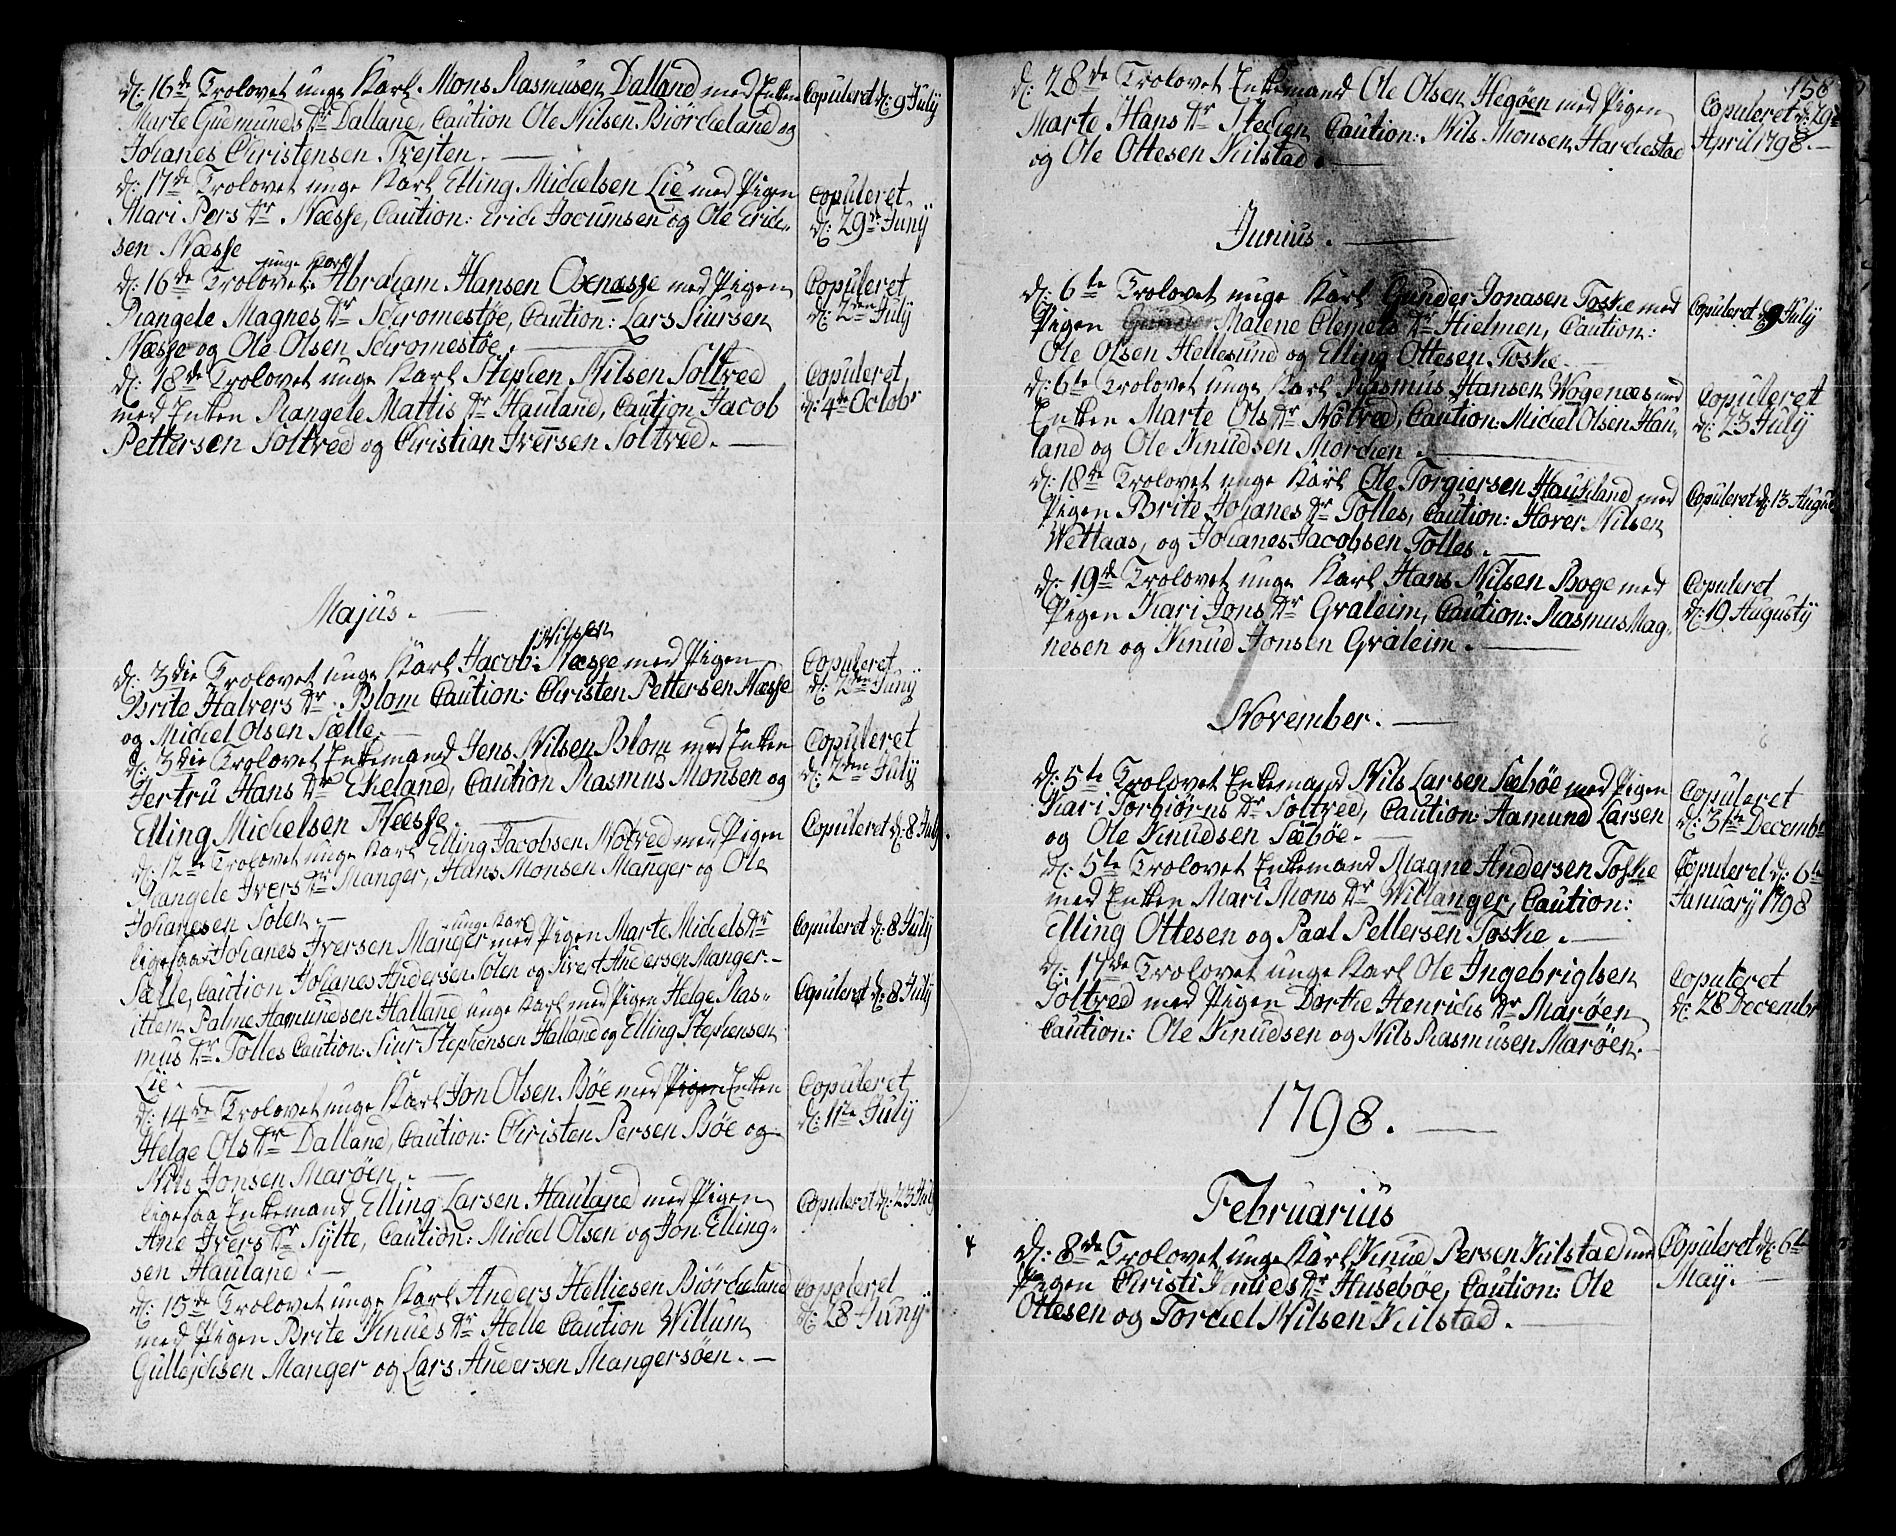 d: 16de Trolovet unge Karl Mons Rasmusen Dalland med Enken
Marte Gudmunds Dr Dalland, Caution Ole Nilsen Biördeland og
Johanes Christensen Trejten.
Copuleret d: 9 Julÿ
d: 17de Trolovet unge Karl Elling Michelsen Lie med Pigen
Mari Pers Dr Næsse, Caution: Erich Jocumsen og Ole Erich-
sen Næsse
Copuleret
d: 29de Junÿ
unge Karl
d: 16de Trolovet: Abraham Hansen Oxnæsse med Pigen
Rangele Magnes Dr Schromestøe, Caution: Lars Siursen
Næsse og Ole Olsen Schromestøe.
Copuleret
d: 2den Julÿ
d: 18de Trolovet unge Karl Stephen Nilsen Soltred
med Enken Rangele Mattis Dr Hauland, Caution Jacob
Pettersen Soltved og Christian Iversen Soltved.
Copuleret
d: 4de Octobr
Majus.
Nilssen
d: 3die Trolovet unge Karl Jacob: Næsse med Pigen
Brite Halvers Dr: Blom Caution: Christen Pettersen Næsse
og Michel Olsen Sælle.
Copuleret
d: 2den Junÿ
d: 3die Trolovet Enkemand Jens Nilsen Blom med Enken
Jertru Hans Dr Ekeland, Caution Rasmus Monsen og
Elling Michelsen Næsse.
Copuleret
d: 2den Julÿ
d: 12de Trolovet unge Karl Elling Jacobsen Nøtved med Pigen
Rangele Ivers Dr Manger, Hans Monsen Manger og Ole
Johanesen Solen.
Copuleret d: 8 Julÿ.
unge Karl
ligesaa Johanes Iversen Manger med Pigen Marte Michels Dr
Sælle, Caution Johanes Andersen Solen og Sivert Andersen Manger.
Copuleret d: 8 Julÿ
ittem Palme Hamundsen Halland unge Karl med Pigen Helge Ras-
mus Dr Tolles Caution: Siur Stephensen Halland og Elling Stephensen
Lie.
Copuleret d: 8 Julÿ
d: 14de Trolovet unge Karl Jon Olsen Bøe med Pigen Enken
Helge Ols Dr Dalland, Caution: Christen Persen Bøe og
Nils Jonsen Marøen.
Copuleret
d: 11te Julÿ
ligesaa Enkemand Elling Larsen Hauland med Pigen
Ane Ivers Dr Sylte, Caution: Michel Olsen og Jon Elling-
sen Hauland.
Copuleret d: 23 Julÿ
d: 15de Trolovet unge Karl Anders Helliesen Biördeland
med Pigen Brite Knues Dr Helle Caution Willum
Gullejchsen Manger og Lars Andersen Mangersøen.
Copuleret
d: 28 Junÿ
158
d: 28de Trolovet Enkemand Ole Olsen Hegøen med Pigen
Marte Hans Dr Stedien Caution: Nils Monsen Hardestad
og Ole Ottesen Kilstad.
Copuleret d: 29de
April 1798.
Junius.
d: 6te Trolovet unge Karl Gunder Jonasen Toske med
Pigen Malene Clemets Dr Hielmen, Caution:
Ole Olsen Hellesund og Elling Ottesen Toske.
Copuleret d 9 Julÿ
d: 6te Trolovet unge Karl Rasmus Hansen Wogenæs med
Enken Marte Ols Dr Nøtved, Caution: Michel Olsen Hau-
land og Ole Knudsen Morchen.
Copuleret
d: 23 Julÿ
d: 18de Trolovet unge Karl Ole Torgiersen Haukland med
Pigen Brite Johanes Dr Tolles, Caution: Hover Nilsen
Wettaas, og Johanes Jacobsen Tolles.
Copuleret d: 13 August
d: 19de Trolovet unge Karl Hans Nilsen Boge med
Pigen Kari Jons Dr Graleim, Caution: Rasmus Mag-
nesen og Knud Jonsen Graleim.
Copuleret
d: 19 Augustÿ
November.
d: 5te Trolovet Enkemand Nils Larsen Sæbøe med Pigen
Kari Torbiørns Dr Soltved, Caution: Hamund Larsen
og Ole Knudsen Sæbøe.
Copuleret
d: 31te Decembr
d: 5te Trolovet Enkemand Magne Andersen Toske
med Enken Mari Mons Dr Willanger, Caution:
Elling Ottesen og Paal Pettersen Toske.
Copuleret d: 6te
Januarÿ 1798
d: 17de Trolovet unge Karl Ole Ingebrigtsen
Soltved med Pigen Dorthe Henrichs Dr Marøen
Caution: Ole Knudsen og Nils Rasmusen Marøen.
Copuleret
d: 28 Decembr
1798.
Februarius
d: 8de Trolovet unge Karl Knud Persen Kilstad med
Pigen Christi Knues Dr Husebøe, Caution: Ole
Ottesen og Torchel Nilsen Kilstad.
Copuleret d: 6te
Maÿ.